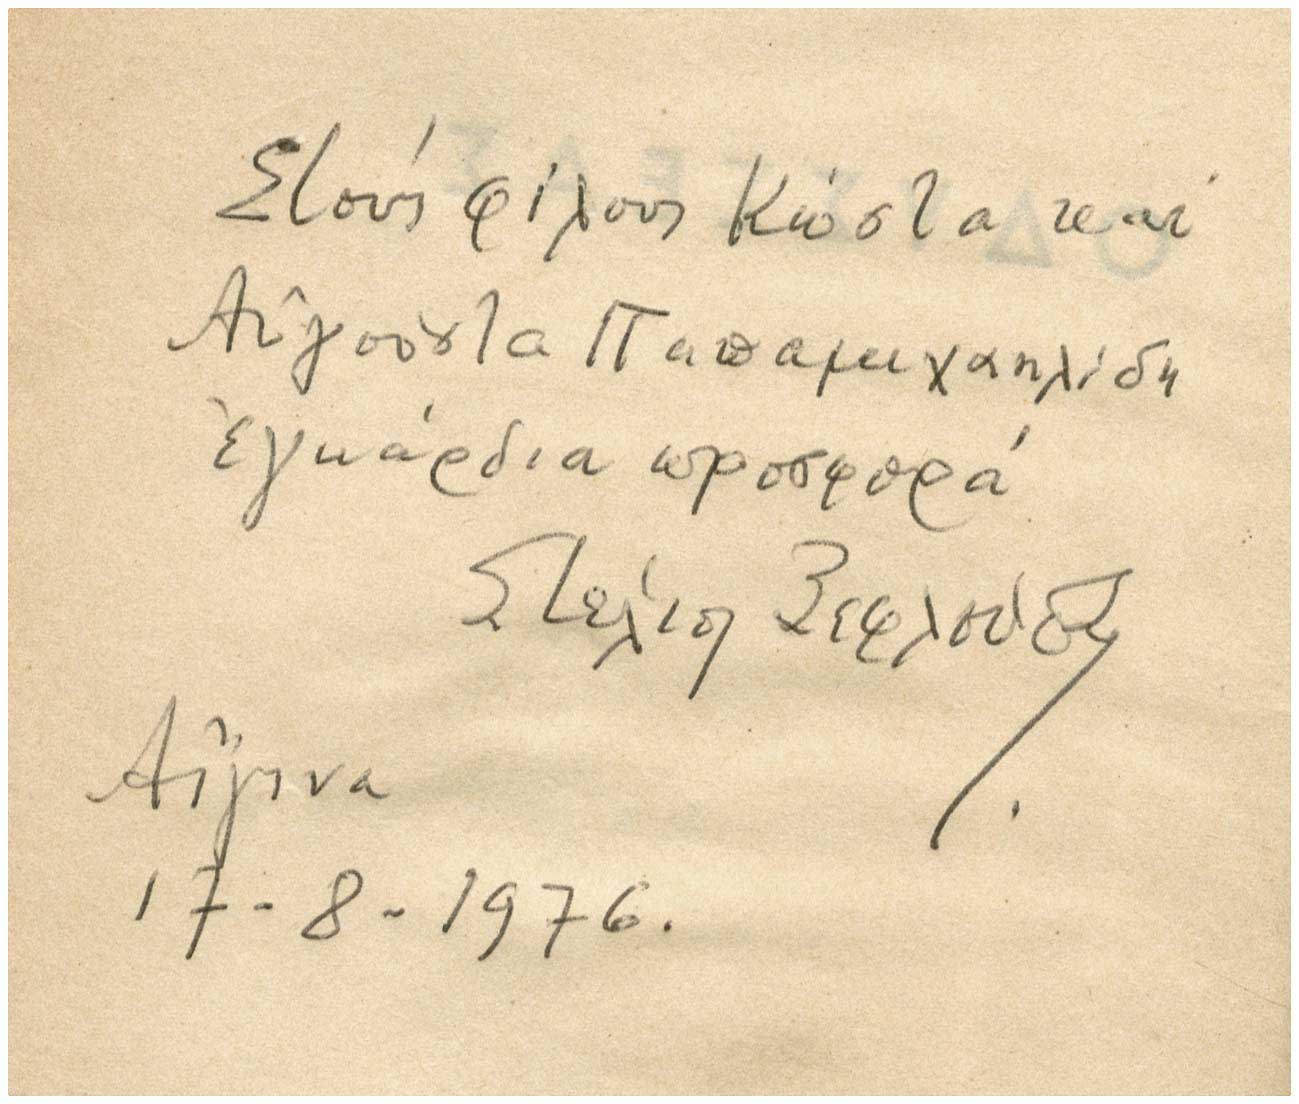 Στοὺς φίλους Κώστα καὶ
Αὐγούστα Παπαμιχαηλίδη
ἐγκάρδια προσφορά
Στέλιος Ξεφλούδας
Αἴγινα
17-8-1976.